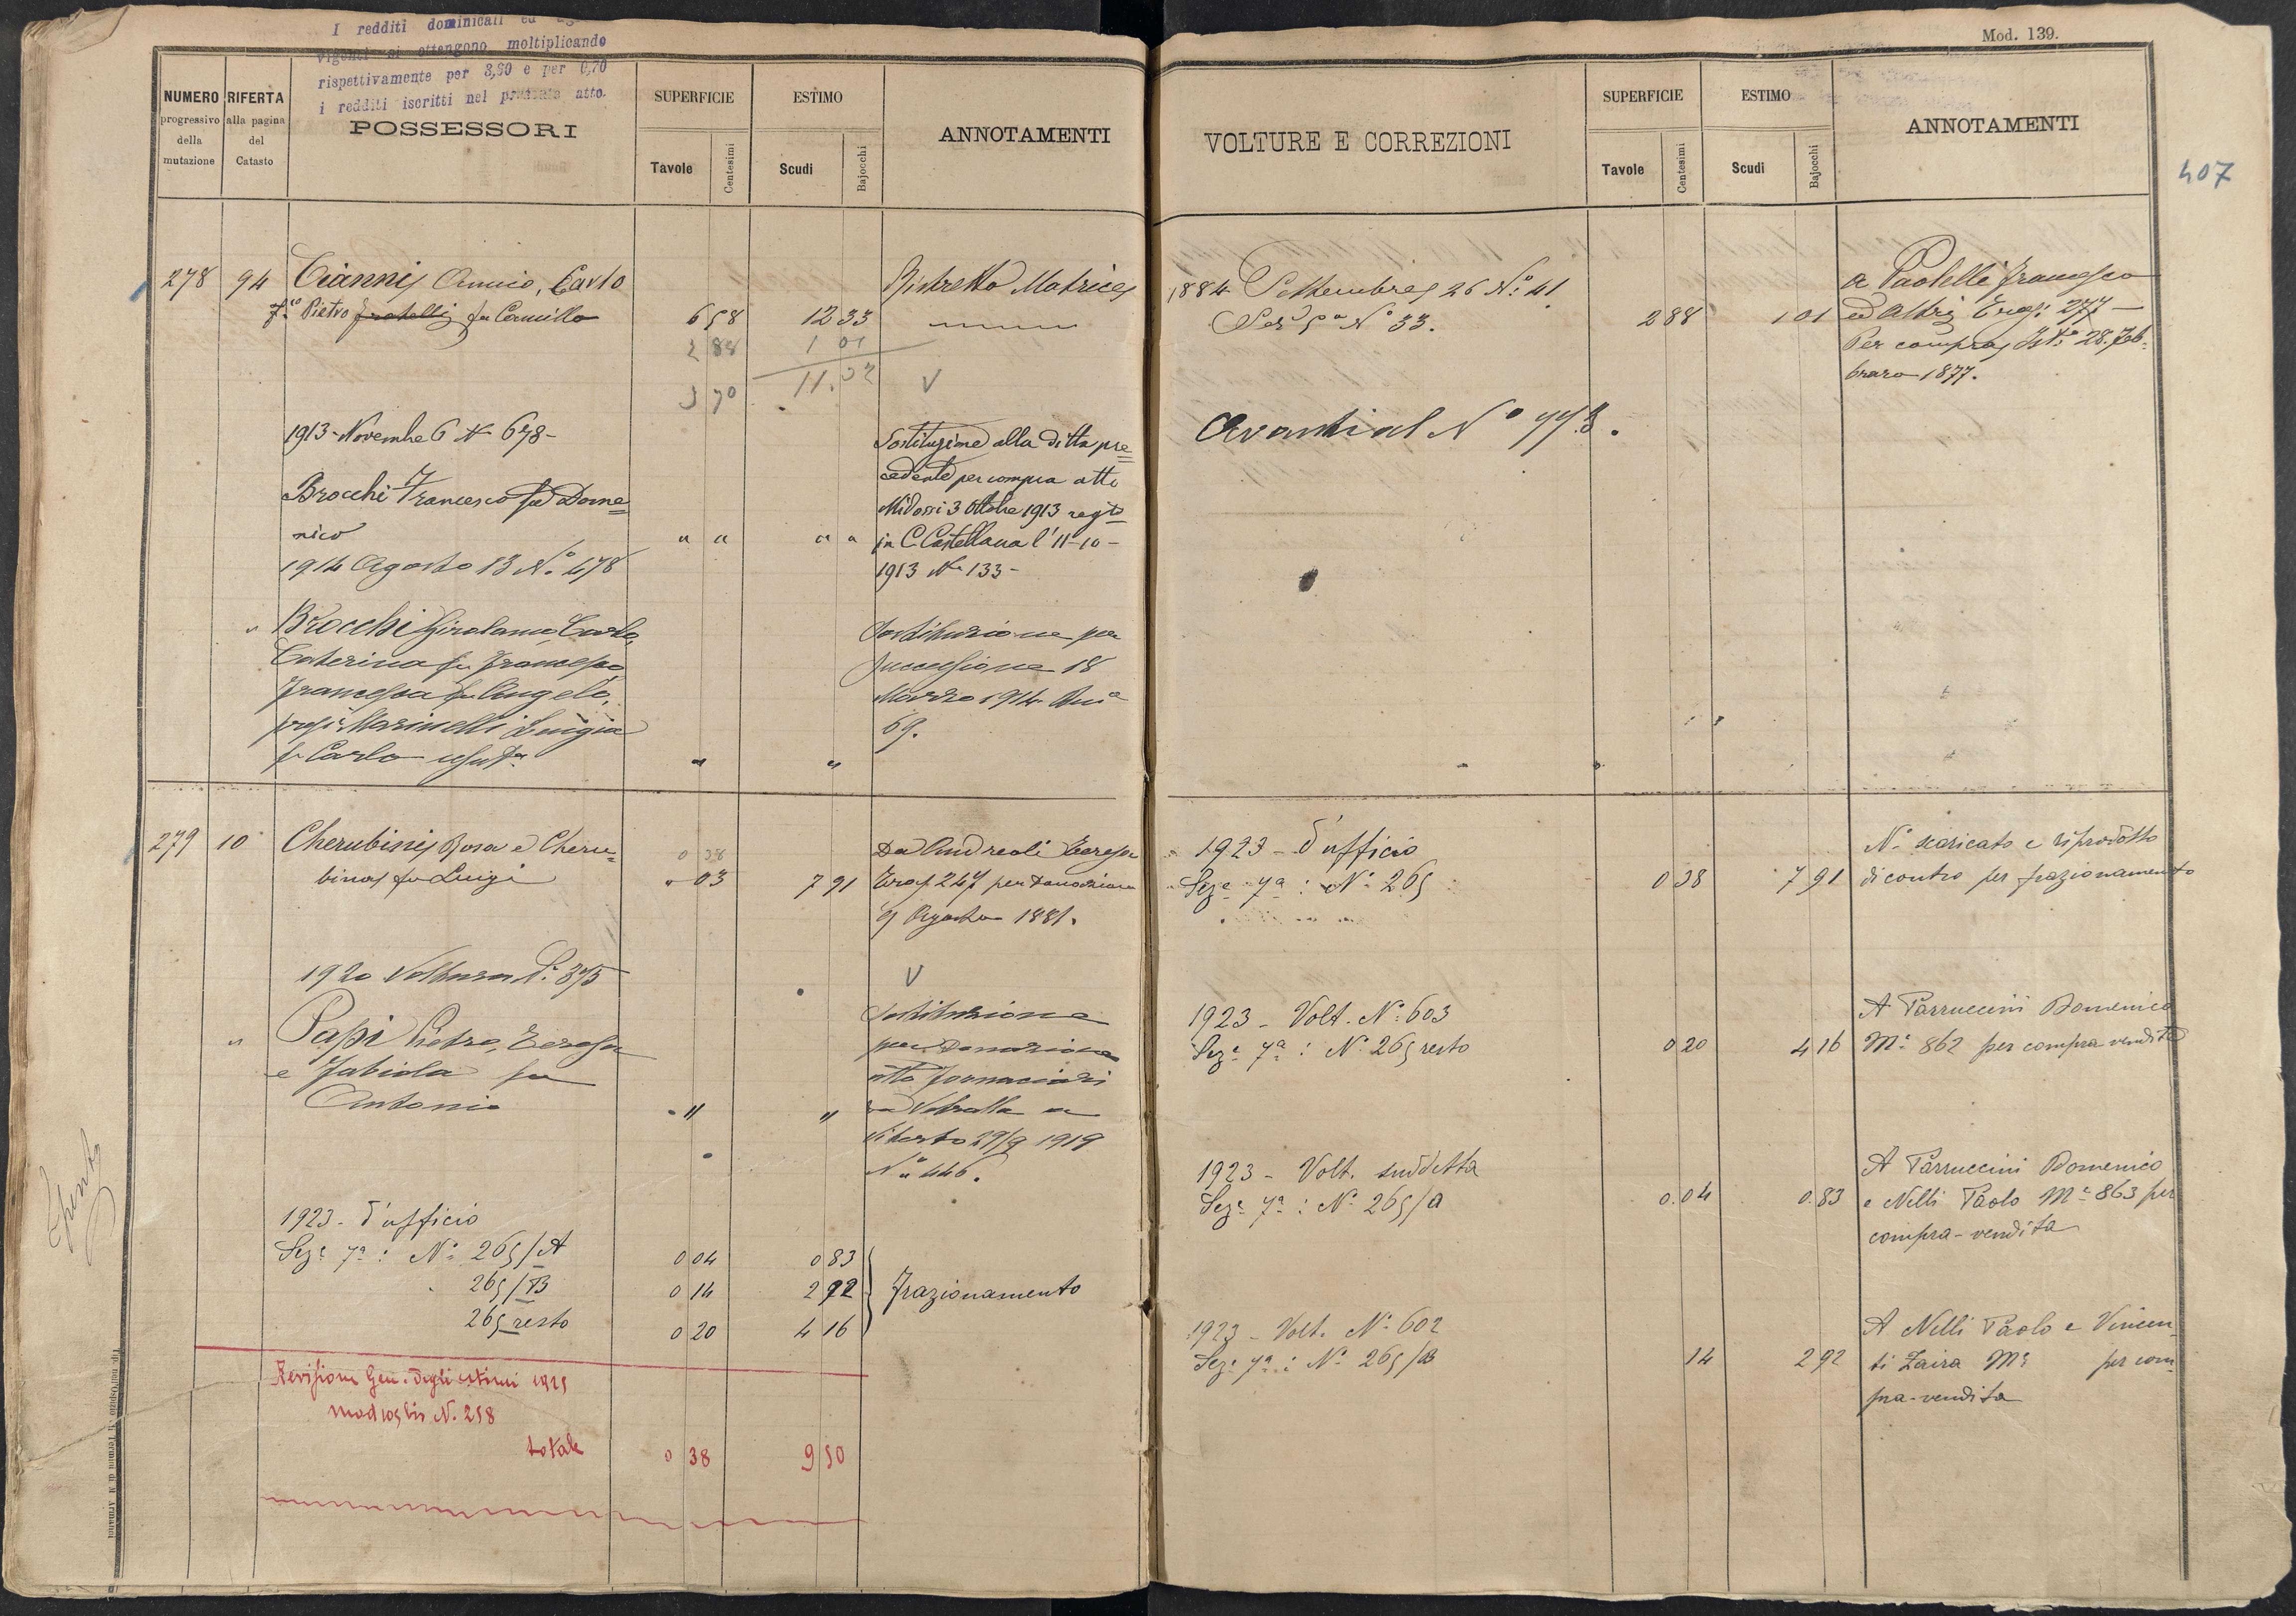 I redditi dominicali ed
vigenti si ottengono moltiplicando
rispettivamente per 3,60 e per 0,70
i redditi iscritti nel presente atto.
NUMERO
progressivo
della
mutazione
RIFERTA
alla pagina
del
Catasto
POSSESSORI
SUPERFICIE
Tavole
Centesimi
ESTIMO
Scudi
Bajocchi
ANNOTAMENTI
278 94 Ciannij Amico, Carlo Ristretto Matrice
Pietro fratelli fu Camillo 6 58 12 33
2 88 1 01
3 70 11.32 V
1913 - Novembre 6 N 678 -
Sostituzione alla ditta pre=
cedente per compra atto
Brocchi Francesco fu Dome=
Midossi 3 Ottobre 1913 regto
nico " " " " in C. Castellana l'11-10-
1914 Agosto 13 No 478
1913 No 133 -
" Brocchi Girolamo, Carlo,
Sostituzione per
Caterina fu Francesco
successione 18
Francesca fu Angelo,
Marzo 1914
Marinelli Luigia
69.
fu Carlo " "
279 10 Cherubinij Rosa e Cheru= 0 38 Da Andreoli Teresa
binaj fu Luigi " 03 7 91 Prog. 247 per donazione
9 Agosto 1881.
1920 Voltura No 375 V
Sostituzione
" Papi Pietro, Teresa
per Donazione
e Fabiola fu
atto Fornaciari
Antonio " "
da Vetralla a
Viterbo 29/9 1919
No 446.
1923 - d'ufficio
Seze 7a : No 265/A 0 04 0 83
265/B 0 14 2 92 Frazionamento
265 resto 0 20 4 16
Revisione Gen. degli estimi 1925
mod 105 bis N. 258
totale 0 38 9 50
Spento
Mod. 139.
407
VOLTURE E CORREZIONI
SUPERFICIE
Tavole
Centesimi
ESTIMO
Scudi
Bajocchi
ANNOTAMENTI
a Paolelli Francesco
1884 Settembrej 26 No 41
ed altrij Prog. 277 -
Sez 5a No 33. 2 88 1 01
Per compraj Isto 28. Feb=
braro 1877.
Avanti al No 773.
1923 - d'ufficio
No scaricato e riprodotto
Seze 7a : No 265 0 38 7 91 di contro per frazionamento
1923 - Volt. No 603
A Parruccini Domenico
Seze 7a : No 265 resto 0 20 4 16 Me 862 per compra vendita
1923 - Volt. suddetta
A Parruccini Domenico
Seze 7a : No 265/A 0.04 0.83 e Nelli Paolo Me 863 per
compra-vendita
1923 - Volt. No 602
A Nelli Paolo e Vincen=
Seze 7a : No 265/B 14 2 92 ti Zaira Me per com=
pra-vendita